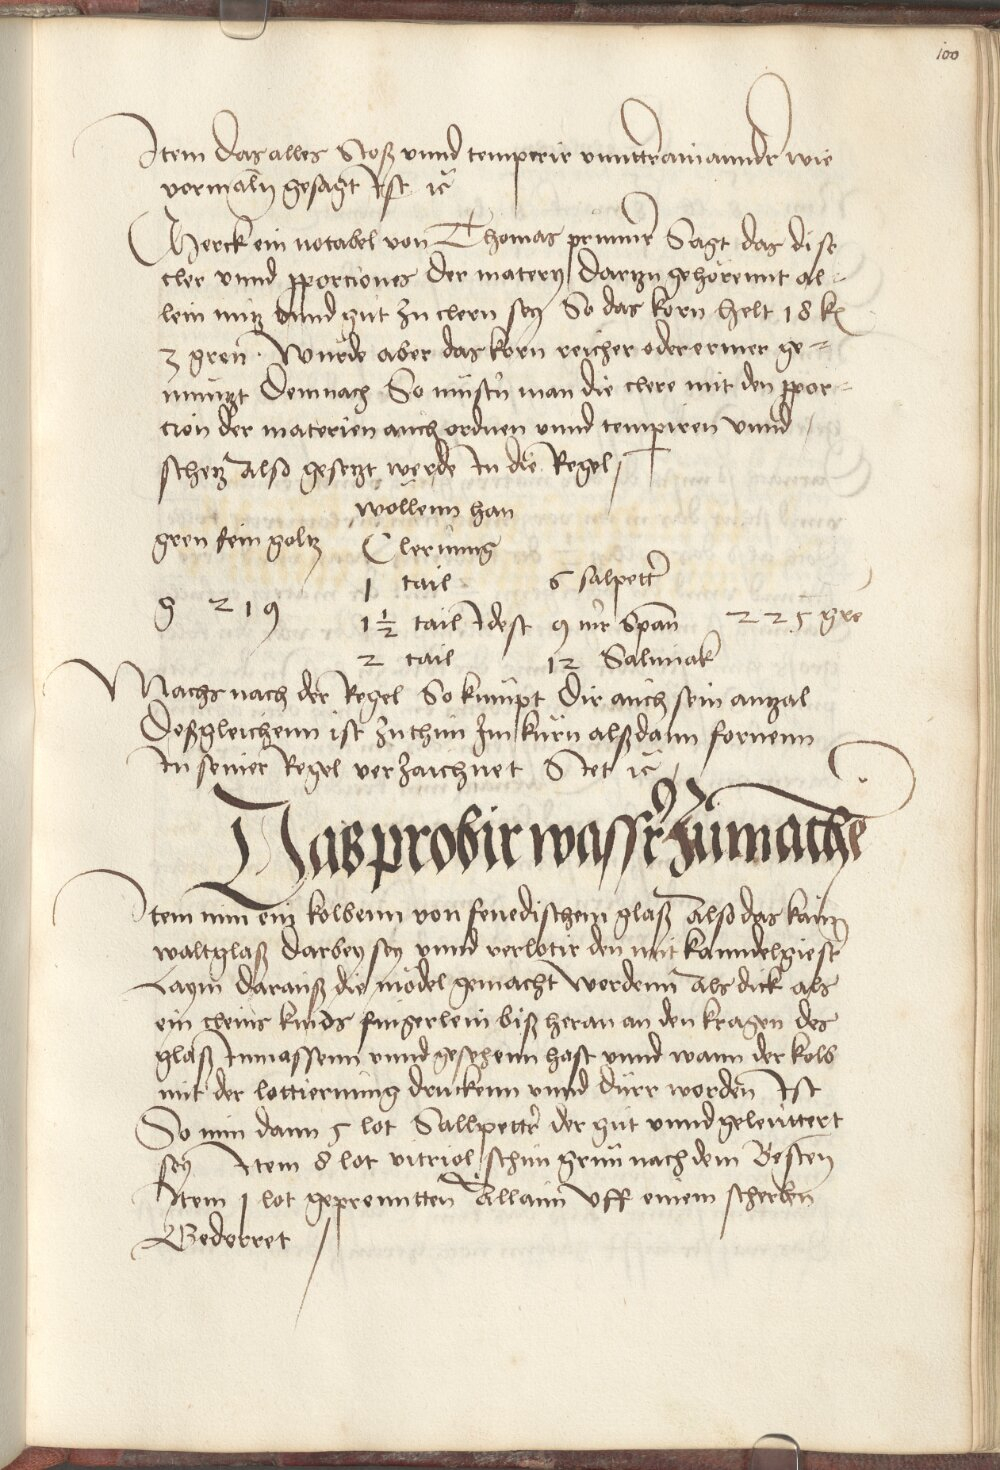 100
Item das alles Stoß vnnd temperir vnnttrainannd˜r wie
vormaln gesagt Ist ꝛc̃
Merck ein notabel von Thomas prunn˜r Sagt das dise
cler vnnd ꝓporciones der matery dartzu gehörennt al=
lein nutz vnnd gut zu clern sey So das korn helt 18 k
3 gren · Wurde aber das korn reicher oder ermer ge=
nnutzt Demnach So müstñ man die clere mit den ꝓpor=
cion der materien auch ordnen vnnd tempiren vnnd
schetz also gesetzt werde In die Regel
wöllenn han
gren fein goltz Clerŭnng
1 tail 6 salpett˜r
g 219 1½ tail Idest 9 m˜r Span̄ 225 gre
2 tail 12 Salmiak
Machs nach der Regel So kumpt Dir auch sein antzal
Deßgleichenn ist zu thun Im kürn alß dann fornenn
In seiner Regel verzaichnet Stet ꝛc̃
Das probir wass˜r Zŭ mache̅
Item nim ein kolbenn von fenedischem glaß Also das kain
waltglaß darbey sey vnnd verlotir den mit kanndelgiest˜
Laym darauß die mödel gemacht werdenn Als dick als
ein cleins kinds fingerlein biß heran an den kragen des
glaß Inmassenn vnnd gesehenn hast vnnd wann der kolb
mit der lottierŭnng druckenn vnnd dürr worden Ist
So nim dann 5 lot Sallpett˜r der gŭt vnnd geleŭttert
sey Item 8 lot vitriol schün grün nach dem Besten
Item 1 lot geprenntten Allaun Vff einem scherben
Gederret